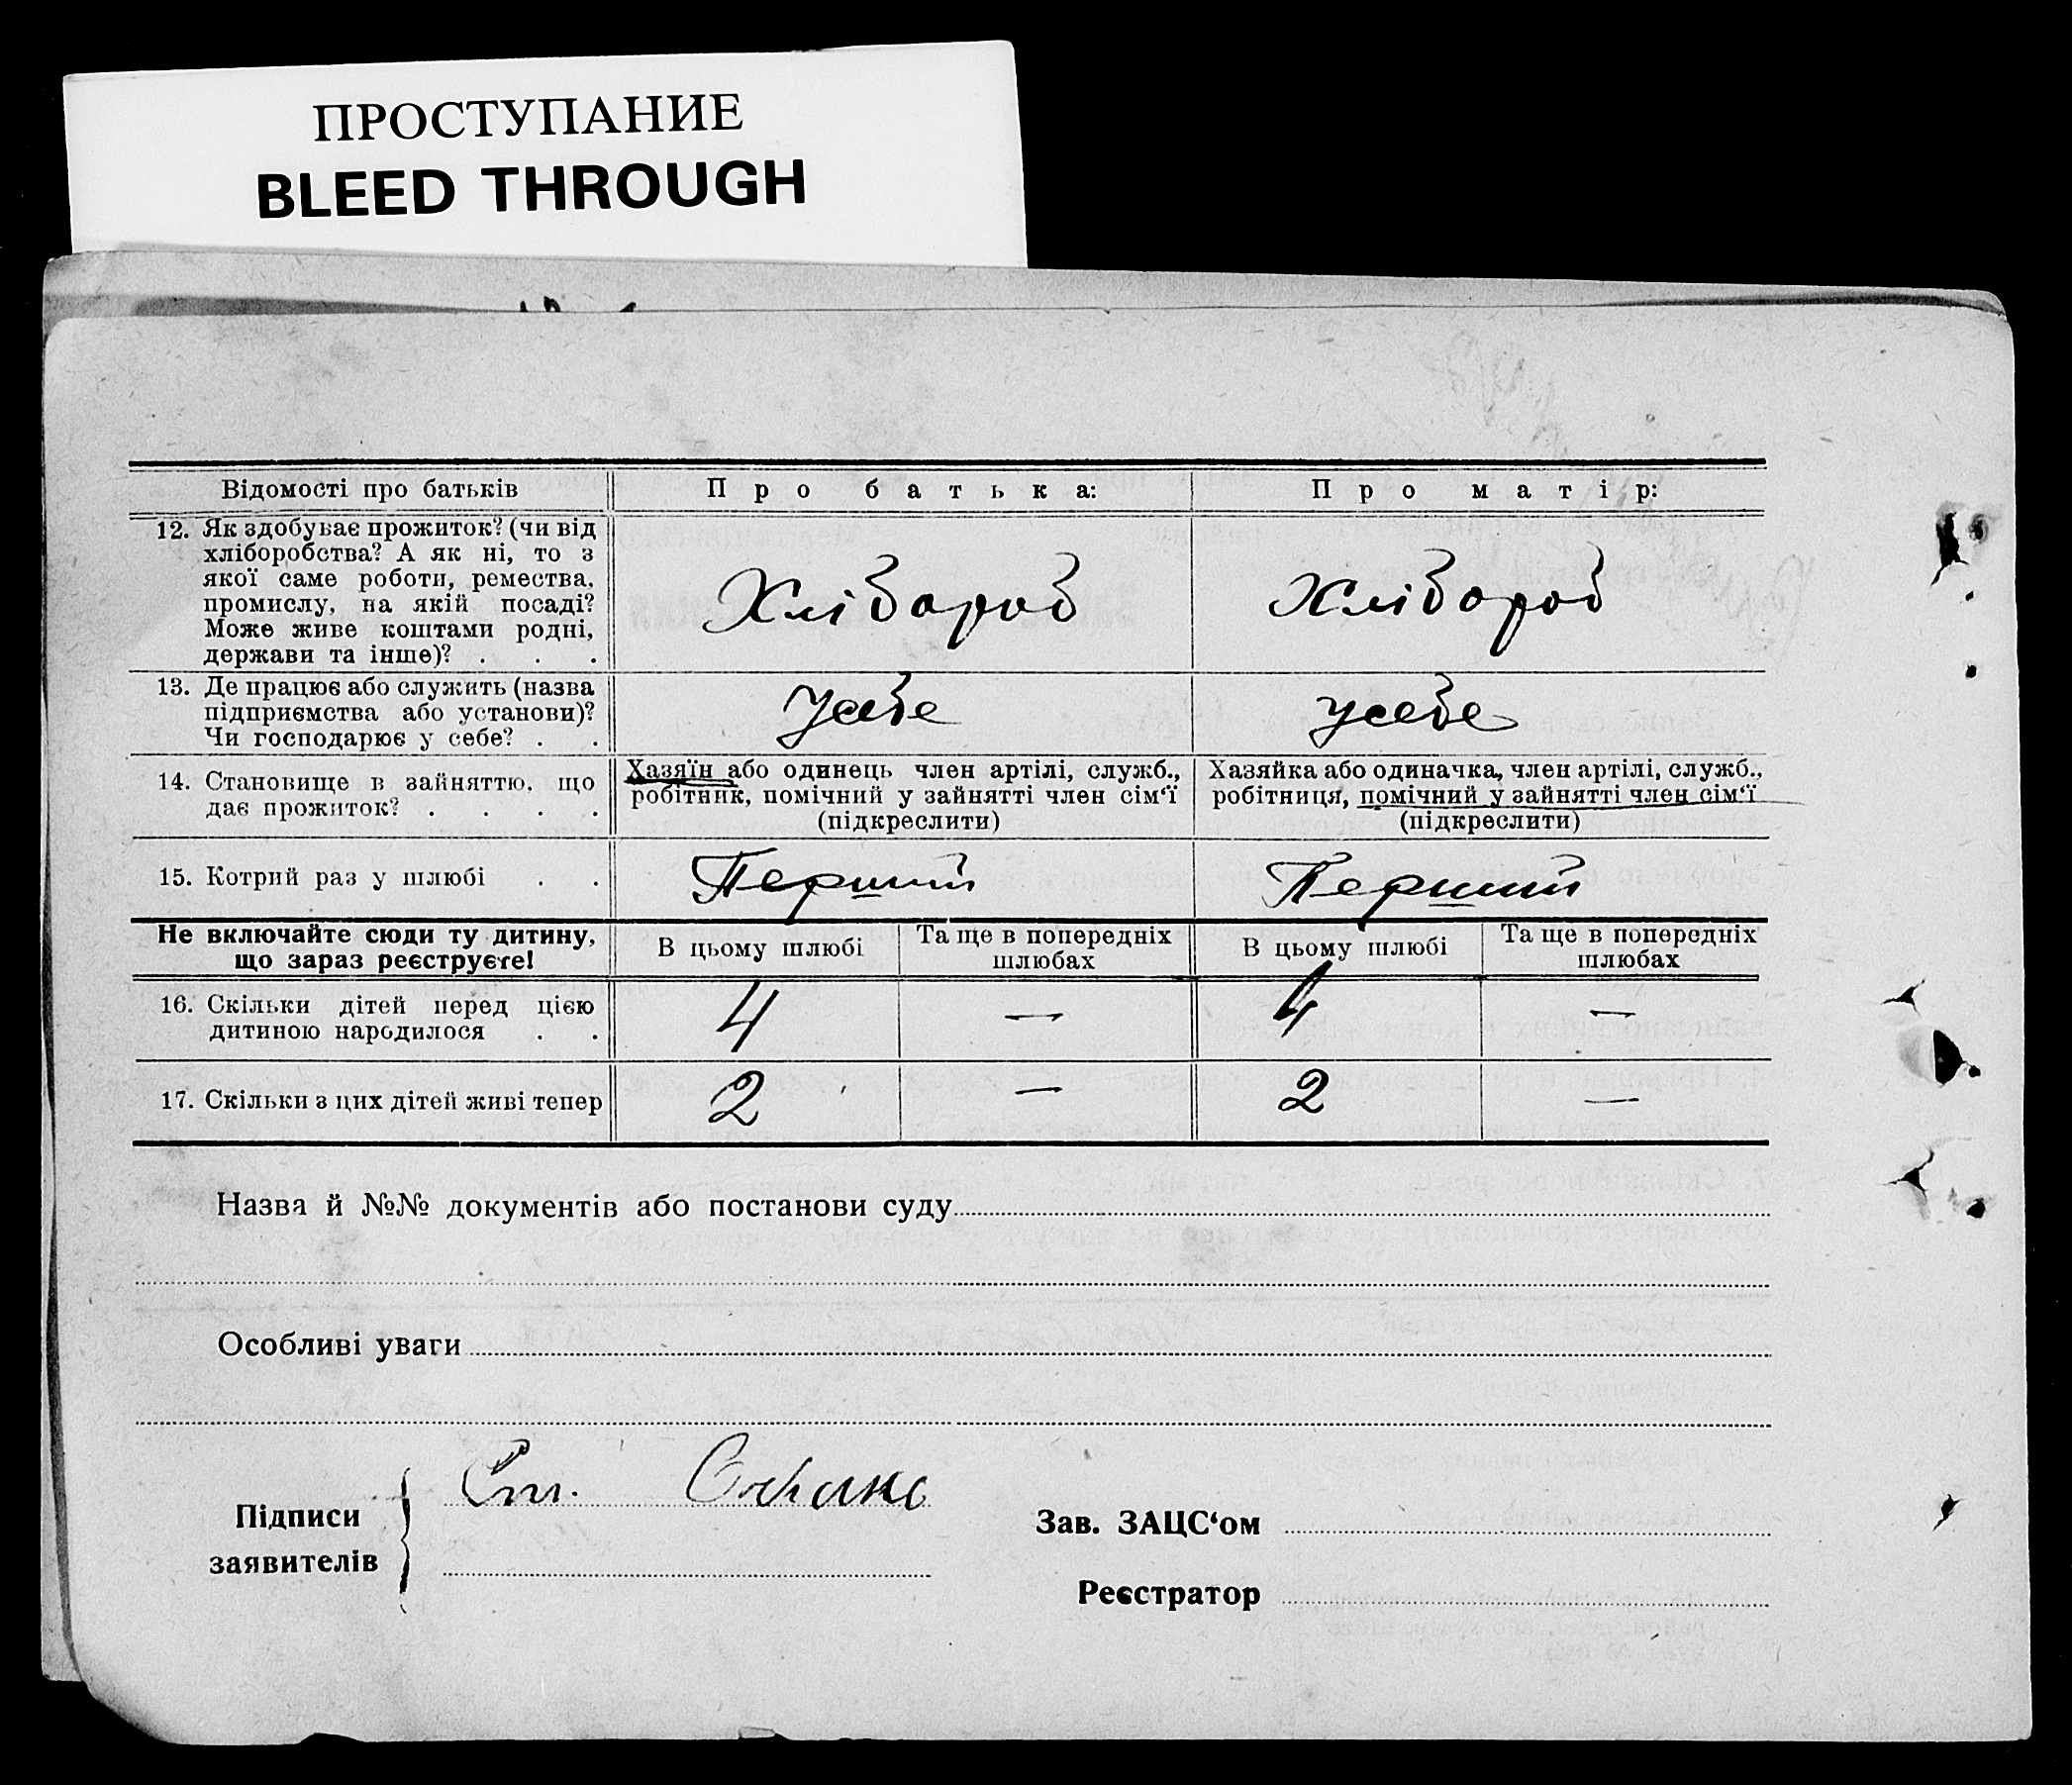 ПРОСТУПАНИЕ
BLEED THROUGH
Відомості про батьків
Про батька:
Про матір:
12. Як здобуває прожиток? (чи від
хліборобства? А як ні, то з
якої саме роботи, ремества,
промислу, на якій посаді?
Може живе коштами родні,
держави та інше)? . . .
Хлібороб
Хлібороб
13. Де працює або служить (назва
підприємства або установи)?
Чи господарює у себе? . .
Усебе
усебе
14. Становище в зайняттю, що
дає прожиток? . . . .
Хазяїн або одинець член артілі, служб.,
робітник, помічний у зайнятті член сім‘ї
(підкреслити)
Хазяйка або одиначка, член артілі, служб.,
робітниця, помічний у зайнятті член сім‘ї
(підкреслити)
15. Котрий раз у шлюбі . .
Перший
Перший
Не включайте сюди ту дитину,
що зараз реєструєте!
В цьому шлюбі
Та ще в попередніх
шлюбах
В цьому шлюбі
Та ще в попередніх
шлюбах
16. Скільки дітей перед цією
дитиною народилося . .
4
—
4
—
17. Скільки з цих дітей живі тепер
2
—
2
—
Назва й №№ документів або постанови суду
Особливі уваги
Підписи
заявителів
Зав. ЗАЦС‘ом
Реєстратор